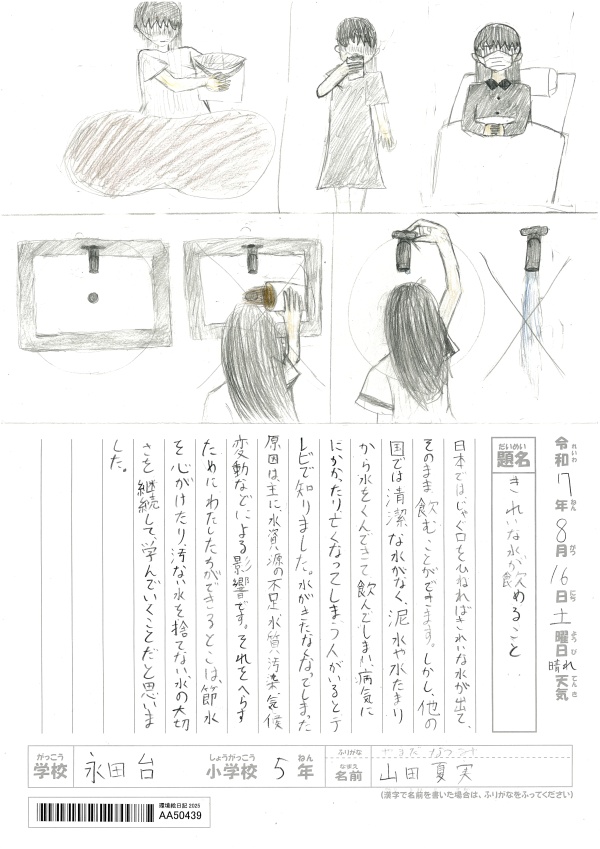 令和 17年 8月 16日 土曜日 晴れ 天気
れいわ ねん がつ にち ようび てんき
だいめい
題名
きれいな水が飲めること
日本ではじゃ口をひねればきれいな水が出て、
そのまま飲むことができます。しかし、他の
国では清潔な水がなく、泥水や水たまり
から水をくんできて飲んでしまい病気に
にかかったり亡くなってしまう人がいるとテ
レビで知りました。水がきたなくなってしまった
原因は、主に、水資源の不足、水質汚染気候
変動などによる影響です。それをへらす
ためにわたしたちができることは、節水
を心がけたり、汚ない水を捨てない、水の大切
さを継続して、学んでいくことだと思いま
した。
がっこう
学校
永田台
しょうがっこう
小学校
5
ねん
年
ふりがな
なまえ
名前
山田 夏実
(漢字で名前を書いた場合は、ふりがなをふってください)
環境絵日記 2025
AA50439